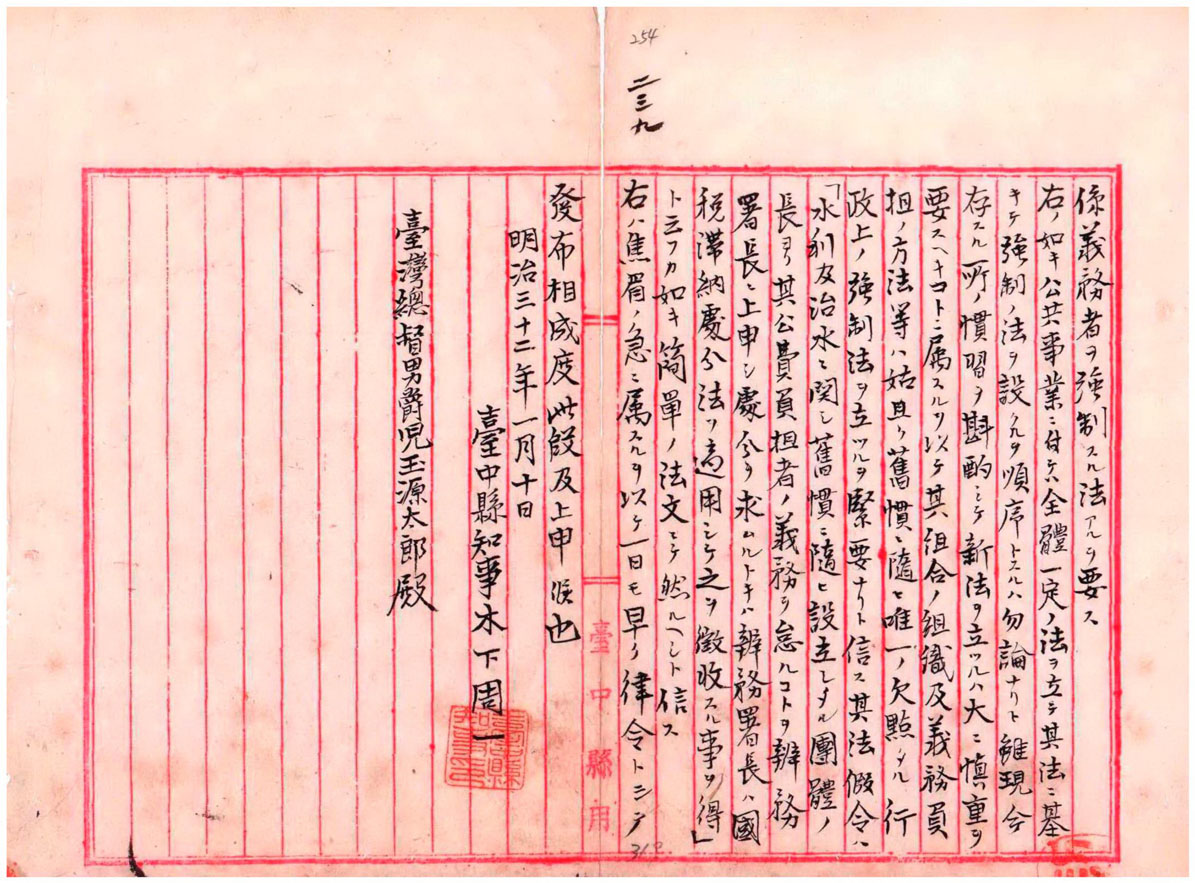 254
二三九
係義務者ヲ強制スル法アルヲ要ス
右ノ如キ公共事業ニ付ケハ全體一定ノ法ヲ立テ其法ニ基
キテ強制ノ法ヲ設クルヲ順序トスルハ勿論ナリト雖現今
存スル所ノ慣習ヲ斟酌シテ新法ヲ立ツルハ大ニ慎重ヲ
要スヘキコトニ属スルヲ以テ其組合ノ組織及義務負
担ノ方法等ハ姑且ク舊慣ニ隨ヒ唯一ノ欠點タル行
政上ノ強制法ヲ立ツルヲ緊要ナリト信ス其法假令ハ
「水利及治水ニ関シ舊慣ニ隨ヒ設立シタル團體ノ
長ヨリ其公費負担者ノ義務ヲ怠ルコトヲ辨務
署長ニ上申シ處分ヲ求ムルトキハ辨務署長ハ國
税滞納處分法ヲ適用シテ之ヲ徴収スル事ヲ得」
ト云フカ如キ簡單ノ法文ニテ然ルヘシト信ス
右ハ焦眉ノ急ニ属スルヲ以テ一日モ早ク律令トシテ
發布相成度此段及上申候也
明治三十二年一月十日
臺中縣知事木下周一
臺灣總督男爵児玉源太郎殿
臺中縣用